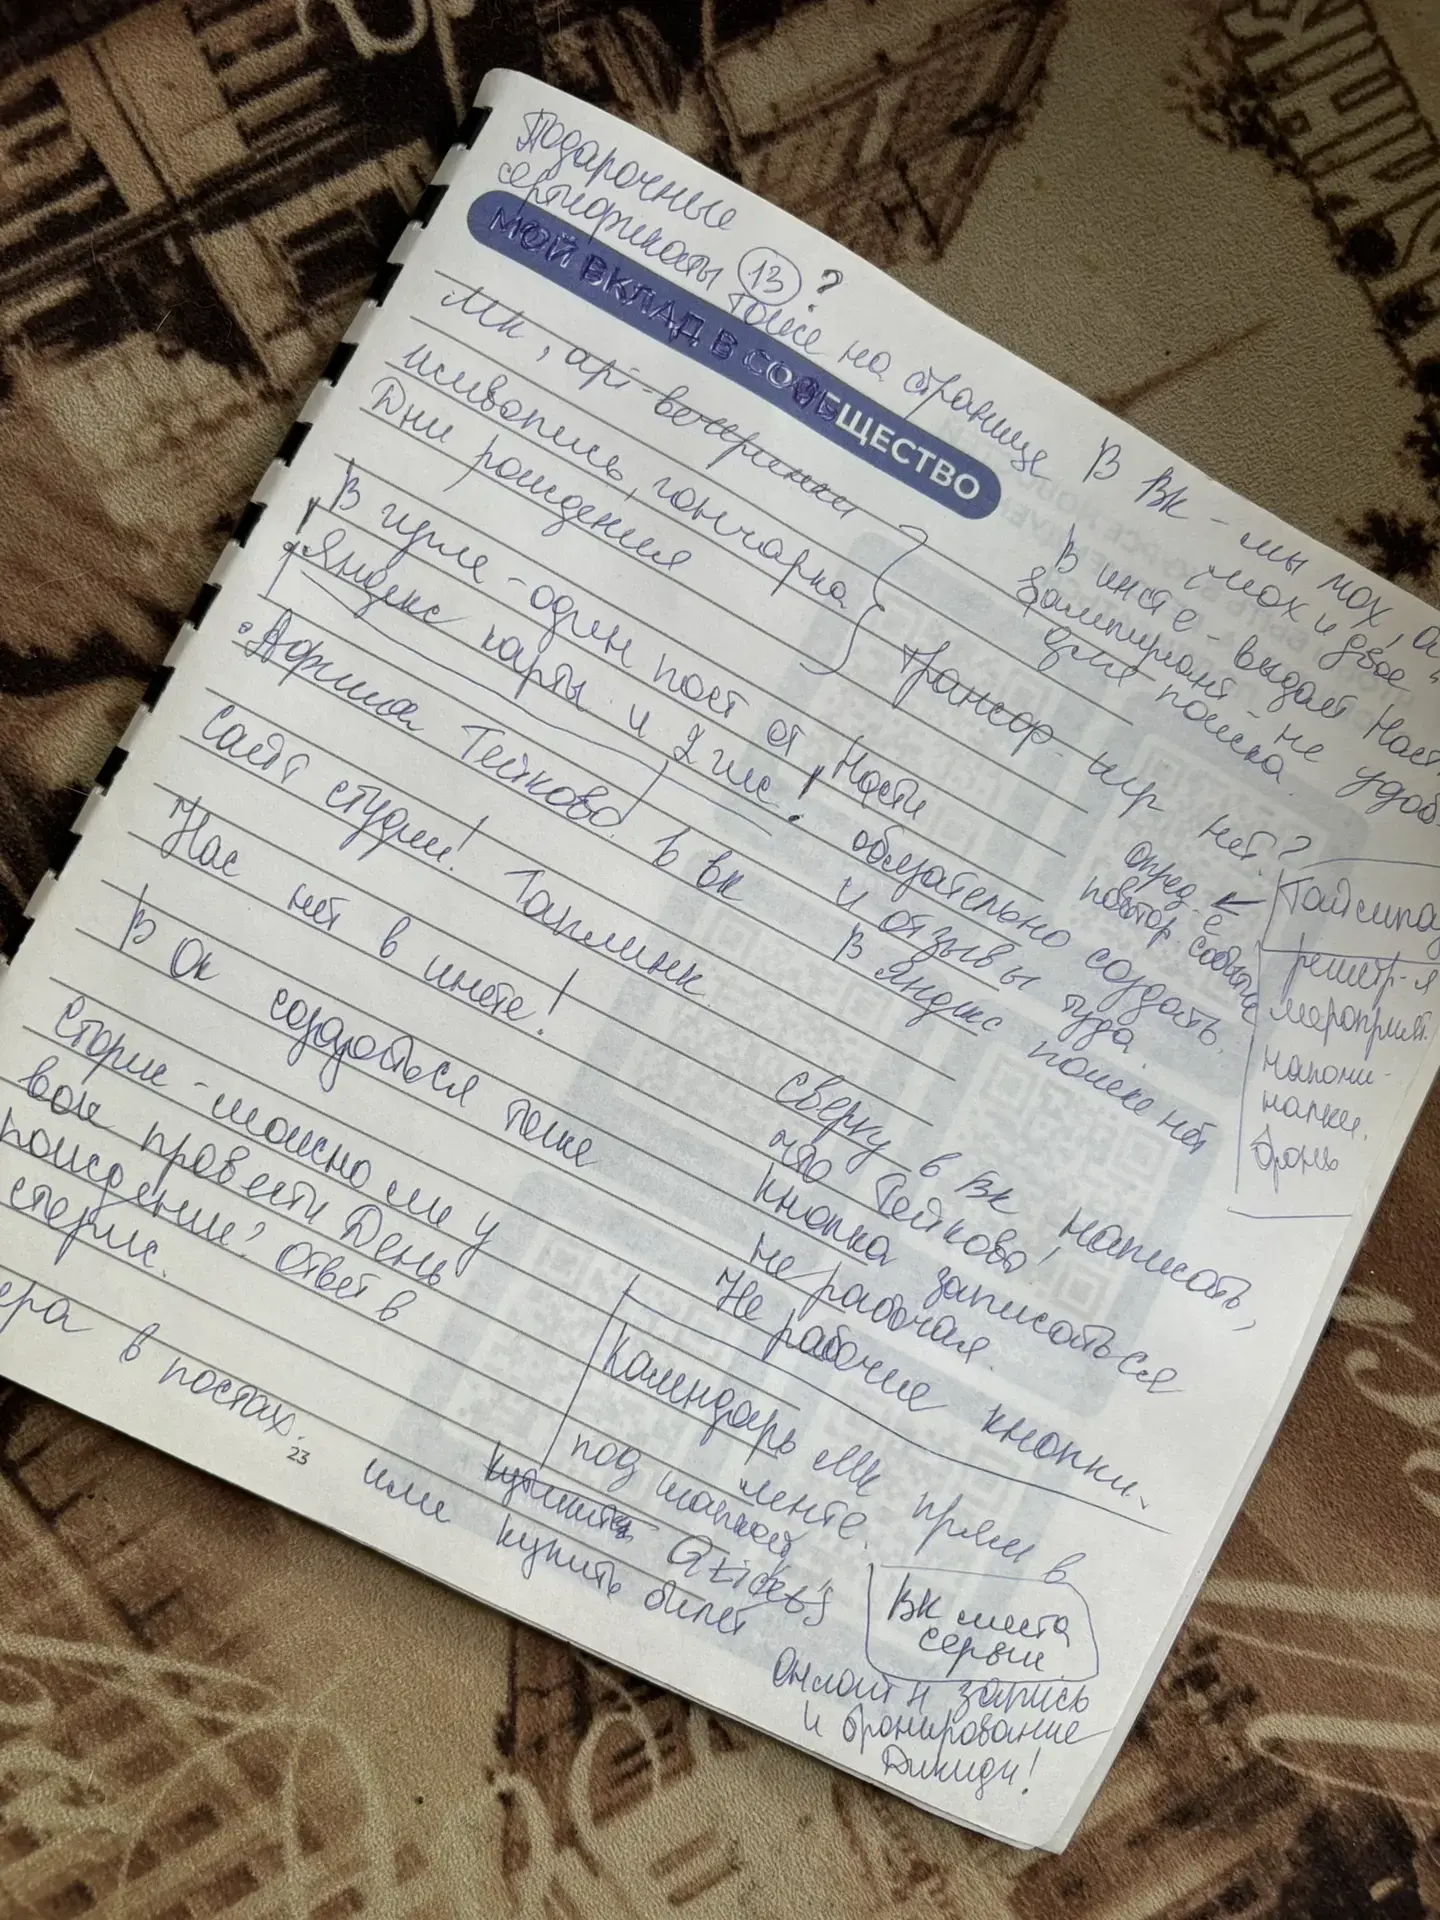 Подарочные
сертификаты 13 ?
тоже на странице
МОЙ ВКЛАД В СООБЩЕСТВО
МК, арт-вечеринки
живопись, гончарка
Дни рождения
В ВК - мы мох, а
мох и двое
В инсте - выдает Наст
вампирант - не удоб
для поиска.
трансфор-ыр нет?
В гугле - один пост от Насти
Яндекс карты и 2 гис! обязательно создать.
и отзывы туда.
Афиша Тейково в вк
В яндекс поиске нет
опред. е
повтор. событие
Таймпад
регистр-я
мероприят.
напоми-
налки.
бронь
сайт студии! Таплинк
Нас нет в инсте!
В Ок создаться тоже
сверху в вк написать,
что Тейково!
кнопка записаться
не рабочая.
Не рабочие кнопки.
сторис - можно ли у
вас провести День
рождение? ответ в
сторис.
ера в постах.
Календарь МК прям в
ленте.
под шапкой
Qtickets
или купить билет
ВК места
сервис
онлайн запись
и бронирование
Дикиди!
23